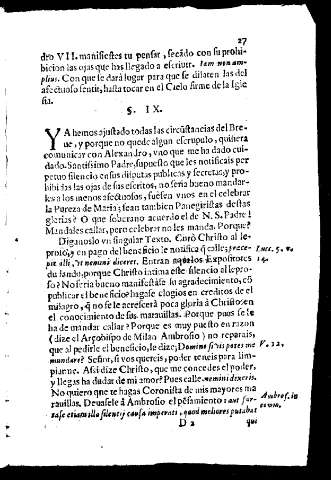 27
dro VII. manifiestes tu pensar, secãdo con su prohi-
bicion las ojas que has llegado a escriuir. Iam non am-
plius. Con que le dará lugar para que se dilaten las del
afectuoso sentir, hasta tocar en el Cielo firme de la Igle
sia.
§. IX.
YA hemos ajustado todas las circũstancias del Bre-
ue, y porque no quede algun escrupulo, quisiera
comunicar con Alexandro, vno que me ha dado cui-
dado. Santissimo Padre, supuesto que les notificais per
petuo silencio en sus disputas publicas y secretas, y pro-
hibi las ojas de sus escritos, no seria bueno mandar-
les a los menos afectuosos, fuessen vnos en el celebrar
la Pureza de Maria, y sean tambien Panegiristas destas
glorias? O que soberano acuerdo el de N. S. Padre!
Mandales callar, pero celebrar no les manda. Porque?
Diganoslo vn singular Texto. Curò Christo al le-
proso, y en pago del beneficio le notifica q̃ calle; præce-
pit illi, vt nemini diceret. Entran aquellos Expositores
Luc. 5. v.
14.
dudando, porque Christo intima este silencio al lepro-
so? No seria bueno manifestàse su agradecimiento, cõ
publicar el beneficio? hagase elogios en creditos de el
milagro, q̃ no se le acrecerà poca gloria à Christo en
el conocimiento de sus marauillas. Porque pues se le
ha de mandar callar? Porque es muy puesto en razon
(dize el Arçobispo de Milan Ambrosio) no reparais,
que al pedirle el beneficio, le dize; Domine si vis potes me
mundare?
V. 12.
Señor, si vos quereis, poder teneis para lim-
piarme. Assi dize Christo, que me concedes el poder,
y llegas ha dudar de mi amor? Pues calle nemini dixeris.
No quiero que te hagas Coronista de mis mayores ma
rauillas. Deuasele à Ambrosio el pẽsamiento: aut for-
tasse etiam illo silentij causa imperati, quod meliores putabat
Ambros. in
D 2
que